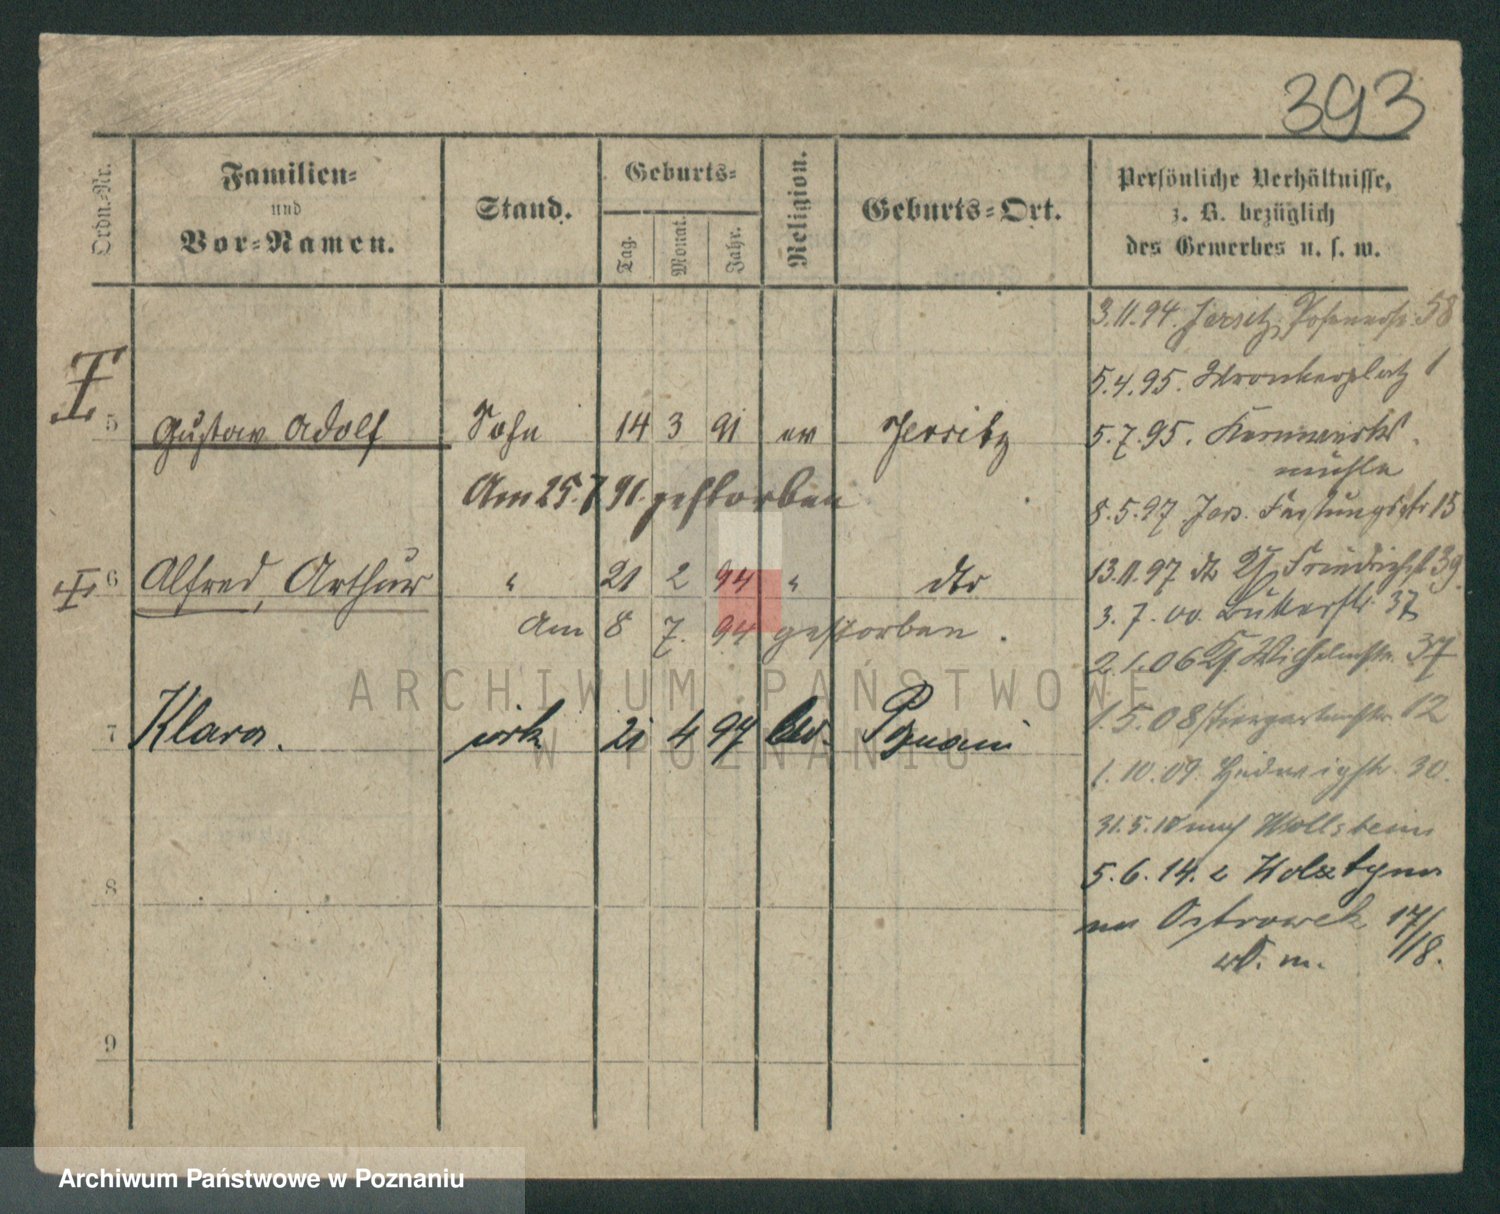 393
Ordn.-Nr.
Familien-
und
Vor-Namen.
Stand.
Geburts-
Tag.
Monat.
Jahr.
Religion.
Geburts-Ort.
Persönliche Verhältnisse,
z. B. bezüglich
des Gewerbes u. s. w.
3.11.94. Jersitz, Posenerstr. 58
5.4.95. Wronkerplatz 1
5 Gustav Adolf Sohn 14 3 91 ev Jersitz
5.7.95. Kernwerks
mühle
Am 25. 7 91. gestorben
8.5.97 Jers. Festungsstr 15
6 Alfred, Arthur " 21 2 94 " dto
13.11.97 dto Friedrichst 39
3.7.00. Bukerstr. 37
Am 8 7. 94 gestorben.
2.1.06 Wilhelmstr. 37
ARCHIWUM PAŃSTWOWE
W POZNANIU
7 Klara. 21 4 97 ev. Poznań
1.5.08 Tiergartenstr 12
1.10.09. Hedwigstr. 30.
31.5.10 nach Wollstein
8
5.6.14. z Wolsztyna
na Ostrowek 17/18.
9
Archiwum Państwowe w Poznaniu